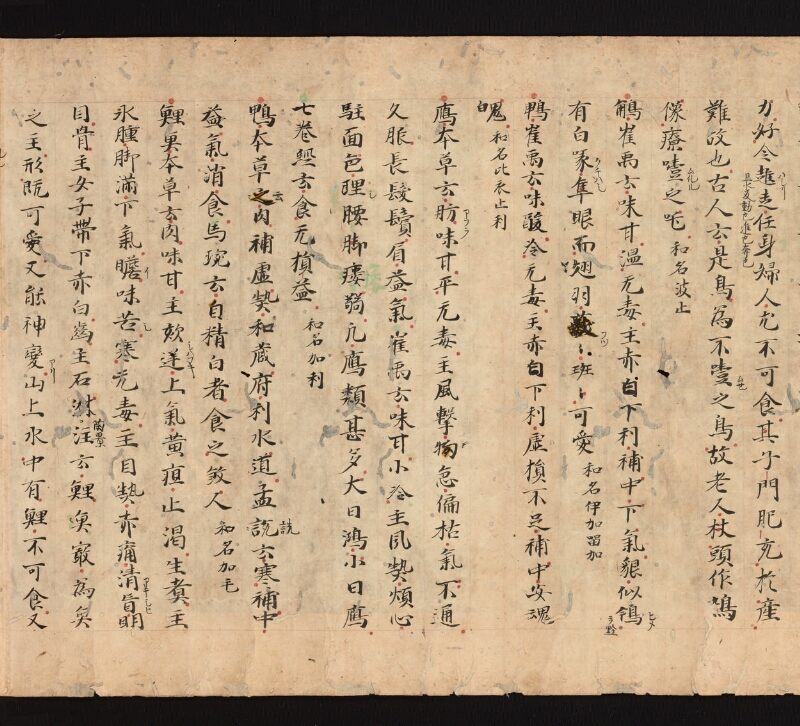 力好令䞤走任身婦人尤不可食其子門肥充於産
難故也古人云是鳥為不噎之鳥故老人杖頭作鳩
像療噎之呪 和名波止
鶻崔禹云味甘温无毒主赤白下利補中下氣貌似鴿
有白冡隼眼而翅羽班〻可愛 和名伊加留加
鴨崔禹云味酸冷无毒主赤白下利虚損不足補中安魂
魄 和名比衣止利
鴈本草云肪味甘平无毒主風擊拘急偏枯氣不通
久服長髮鬢眉益氣崔禹云味甘小冷主風熱煩心
駐面色理腰脚痿弱凡鴈類甚多大曰鴻小曰鴈
七巻經云食无損益 和名加利
鴨本草云肉補虚熱和蔵府利水道孟詵云寒補中
益氣消食馬琬云目精白者食之煞人 和名加毛
鯉魚本草云肉味甘主欬逆上氣黄疸止渇生煑主
水腫脚滿下氣膽味苦寒无毒主目熱赤痛清盲明
目骨主女子帶下赤白齒主石淋注云鯉魚寂為魚
之主形既可愛又能神變山上水中有鯉不可食又